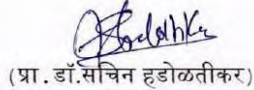 (प्रा. डॉ.सचिन हडोळतीकर)